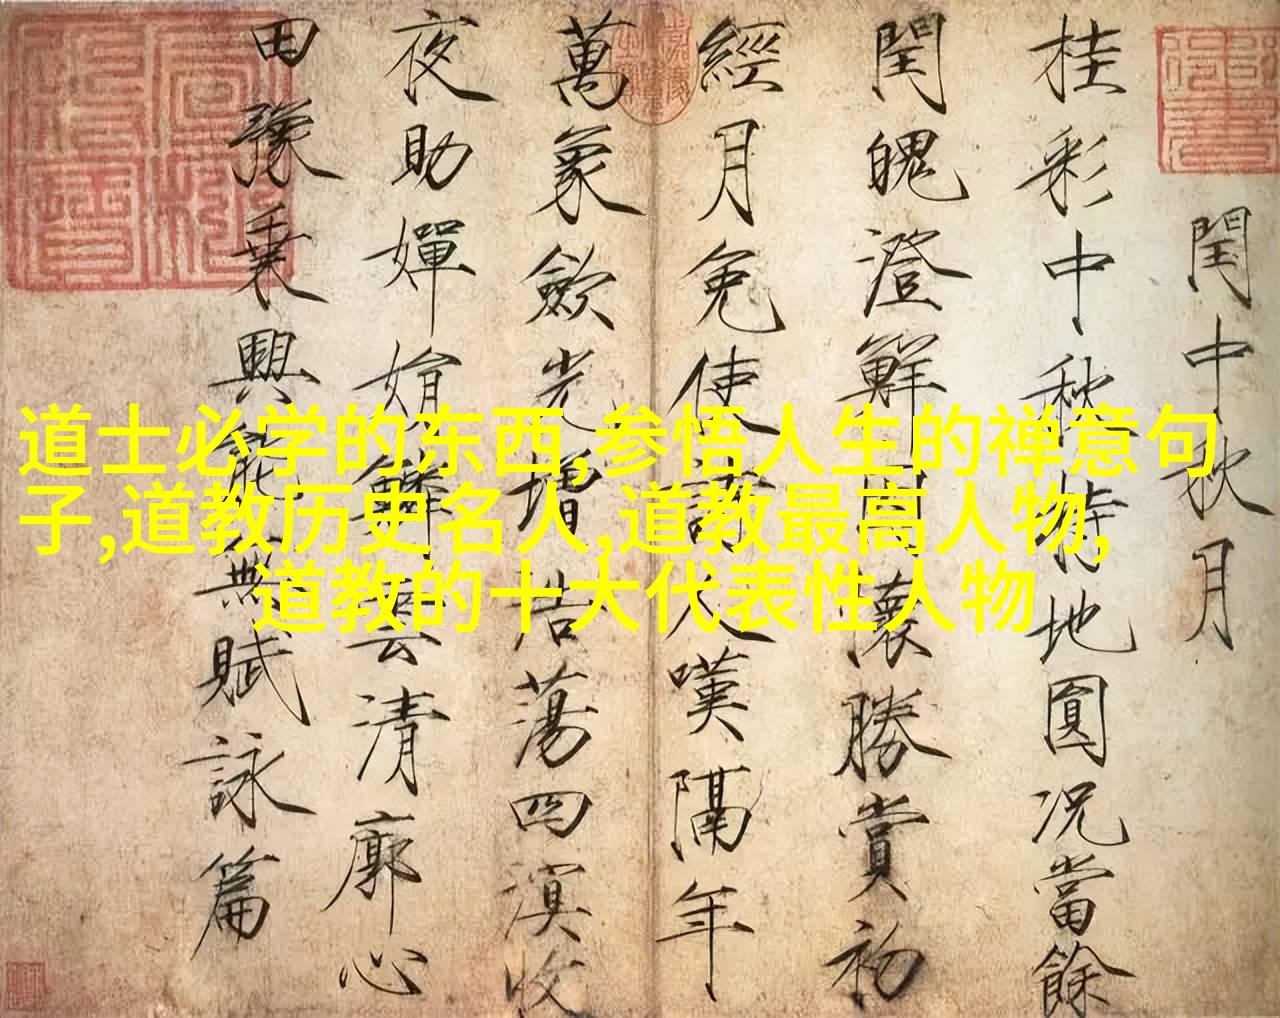 道士必学的东西,参悟人生的禅意句
子,道教历史名人,道教最高人物,
道教的十大代表性人物
閏中秋月
桂彩中秋特地圓況當餘
閏魄澄鮮因懷勝賞初
經月免使詩人嘆隔年
萬象歛光增浩蕩四溟收
夜助嬋娟鱗雲清廓心
田豫乗興能無賦詠篇